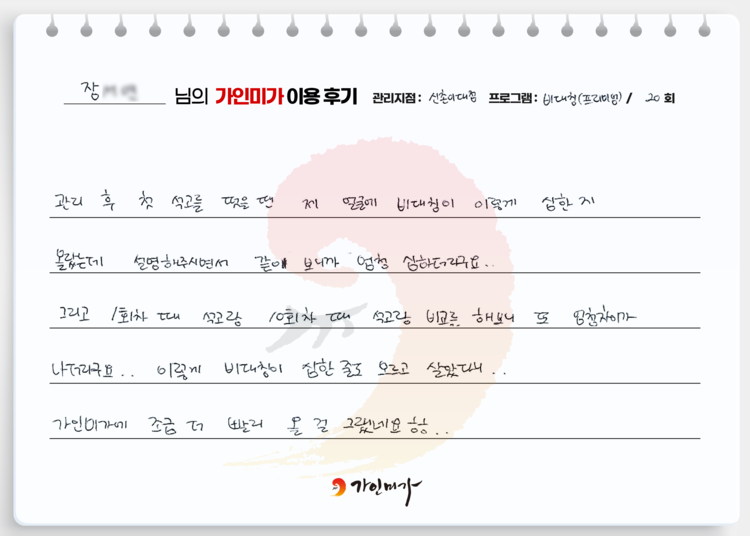 장 님의 가인미가 이용 후기 관리지점 : 신촌이대점 프로그램 : 비대칭(프리미엄) / 20 회
관리 후 첫 석고를 떴을 땐 제 얼굴에 비대칭이 이렇게 심한 지
몰랐는데 설명해주시면서 같이 보니까 엄청 심하더라구요..
그리고 1회차 때 석고랑 10회차 때 석고랑 비교를 해보니 또 엄청차이가
나더라구요.. 이렇게 비대칭이 심한 줄도 모르고 살았다니..
가인미가에 조금 더 빨리 올 걸 그랬네요 항..
가인미가